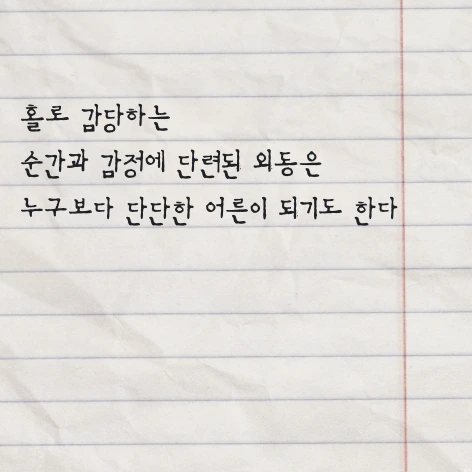 홀로 감당하는
순간과 감정에 단련된 외동은
누구보다 단단한 어른이 되기도 한다